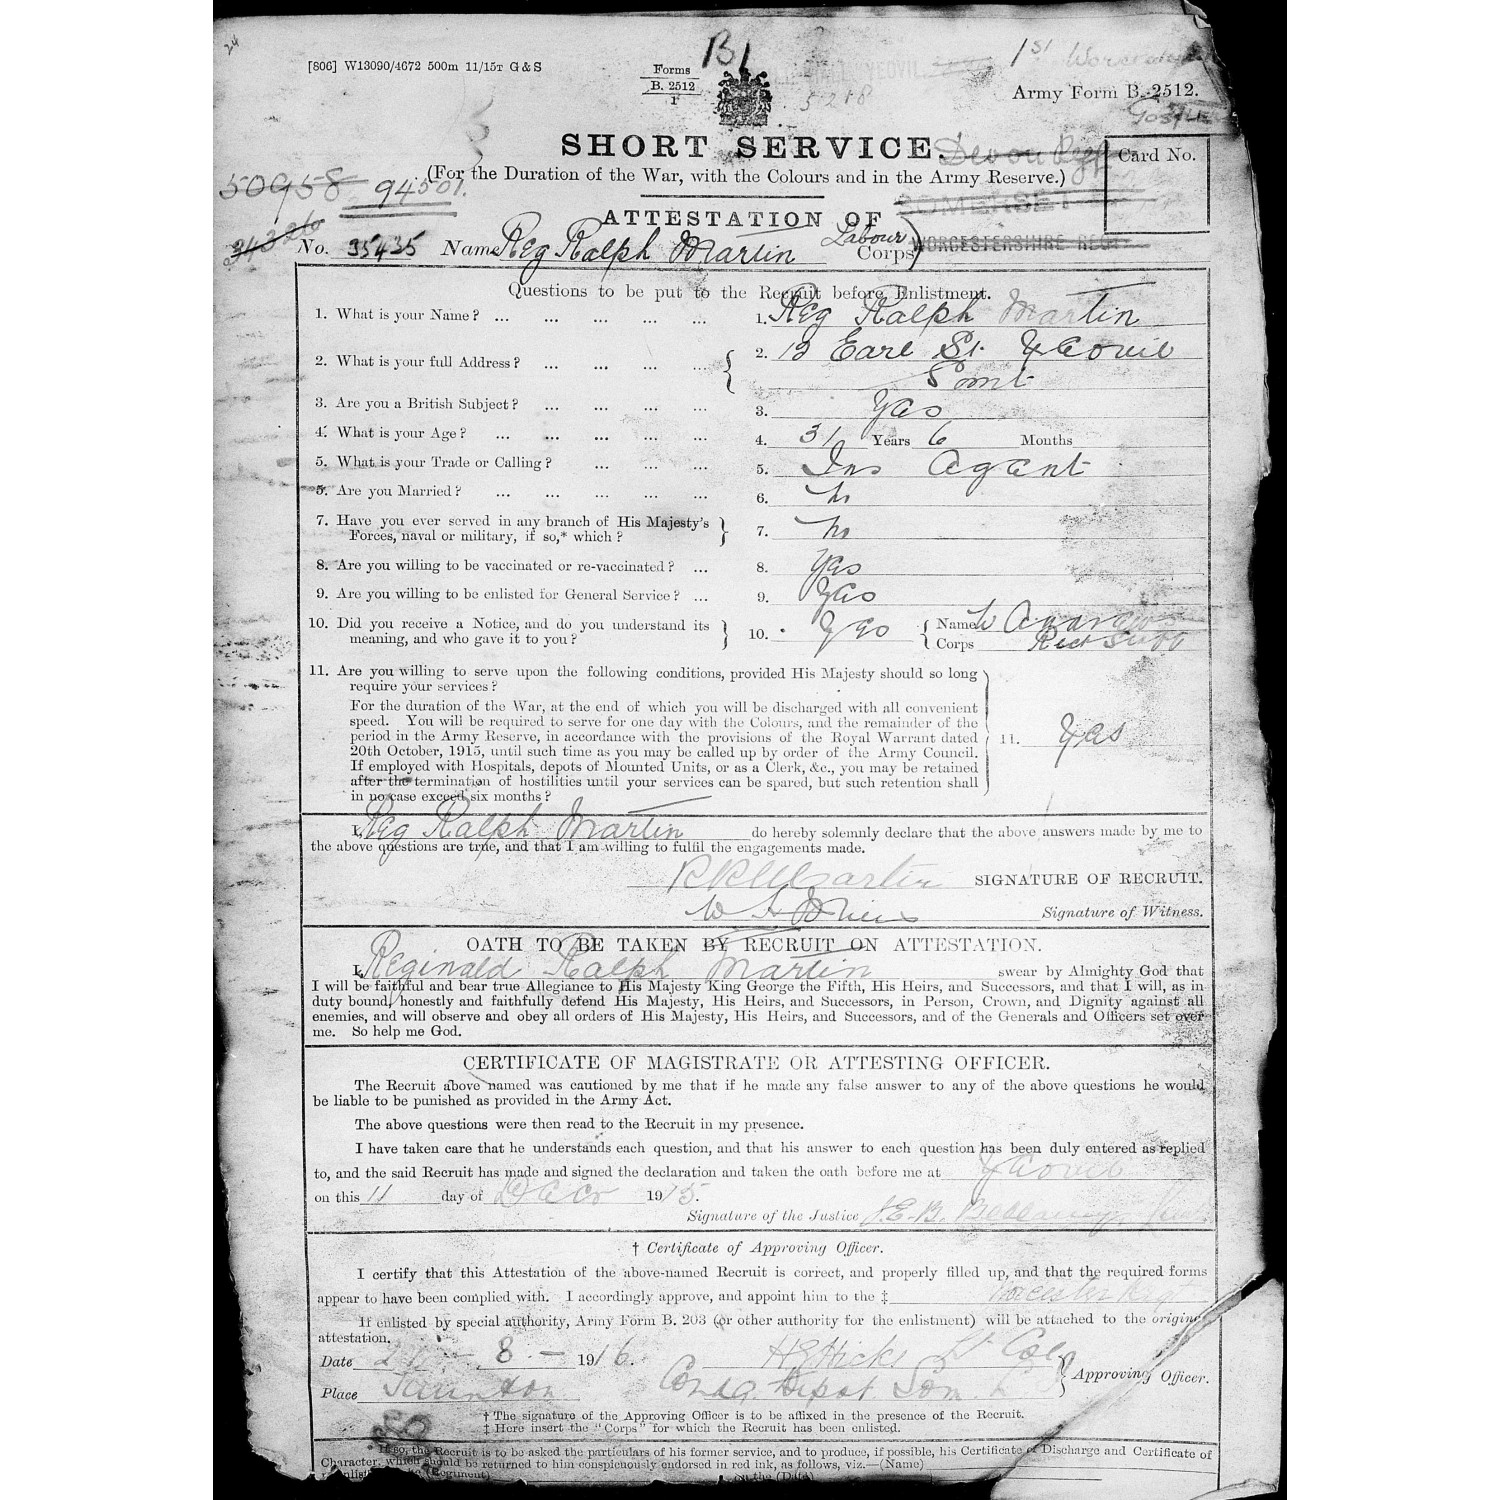 24
[806] W13090/4672 500m 11/15T G & S
Forms
B. 2512
1
B1
5218
1st Worcester
Army Form B. 2512.
SHORT SERVICE.
Devon Regt
Card No.
(For the Duration of the War, with the Colours and in the Army Reserve.)
50958 94501.
SOMERSET
ATTESTATION OF
34326 No. 35435 Name Reg Ralph Martin Labour Corps WORCESTERSHIRE REGT
Questions to be put to the Recruit before Enlistment.
1. What is your Name? ... ... ... ... ... 1. Reg Ralph Martin
2. What is your full Address? ... ... ... ... 2. 19 Earl St. Yeovil
Somt
3. Are you a British Subject? ... ... ... ... 3. Yes
4. What is your Age? ... ... ... ... ... 4. 31 Years 6 Months
5. What is your Trade or Calling? ... ... ... 5. Ins Agent
6. Are you Married? ... ... ... ... ... 6. No
7. Have you ever served in any branch of His Majesty's
Forces, naval or military, if so,* which? 7. No
8. Are you willing to be vaccinated or re-vaccinated? ... 8. Yes
9. Are you willing to be enlisted for General Service? ... 9. Yes
10. Did you receive a Notice, and do you understand its
meaning, and who gave it to you? 10. Yes { Name W
Corps
11. Are you willing to serve upon the following conditions, provided His Majesty should so long
require your services?
For the duration of the War, at the end of which you will be discharged with all convenient
speed. You will be required to serve for one day with the Colours, and the remainder of the
period in the Army Reserve, in accordance with the provisions of the Royal Warrant dated 11. Yes
20th October, 1915, until such time as you may be called up by order of the Army Council.
If employed with Hospitals, depots of Mounted Units, or as a Clerk, &c., you may be retained
after the termination of hostilities until your services can be spared, but such retention shall
in no case exceed six months?
I, Reg Ralph Martin do hereby solemnly declare that the above answers made by me to
the above questions are true, and that I am willing to fulfil the engagements made.
R R Martin SIGNATURE OF RECRUIT.
W H Signature of Witness.
OATH TO BE TAKEN BY RECRUIT ON ATTESTATION.
I, Reginald Ralph Martin swear by Almighty God that
I will be faithful and bear true Allegiance to His Majesty King George the Fifth, His Heirs, and Successors, and that I will, as in
duty bound, honestly and faithfully defend His Majesty, His Heirs, and Successors, in Person, Crown, and Dignity against all
enemies, and will observe and obey all orders of His Majesty, His Heirs, and Successors, and of the Generals and Officers set over
me. So help me God.
CERTIFICATE OF MAGISTRATE OR ATTESTING OFFICER.
The Recruit above named was cautioned by me that if he made any false answer to any of the above questions he would
be liable to be punished as provided in the Army Act.
The above questions were then read to the Recruit in my presence.
I have taken care that he understands each question, and that his answer to each question has been duly entered as replied
to, and the said Recruit has made and signed the declaration and taken the oath before me at Yeovil
on this 11 day of Decr 1915.
Signature of the Justice J.E.B. Bellamy
† Certificate of Approving Officer.
I certify that this Attestation of the above-named Recruit is correct, and properly filled up, and that the required forms
appear to have been complied with. I accordingly approve, and appoint him to the ‡ Worcester Regt
If enlisted by special authority, Army Form B. 203 (or other authority for the enlistment) will be attached to the original
attestation.
Date 8 - 1916. H Hicks Lt Col
Place Taunton Comdg. Depot Som. L I } Approving Officer.
† The signature of the Approving Officer is to be affixed in the presence of the Recruit.
‡ Here insert the "Corps" for which the Recruit has been enlisted.
If so, the Recruit is to be asked the particulars of his former service, and to produce, if possible, his Certificate of Discharge and Certificate of
Character, which should be returned to him conspicuously endorsed in red ink, as follows, viz.—(Name)
(Regiment) on the (Date)